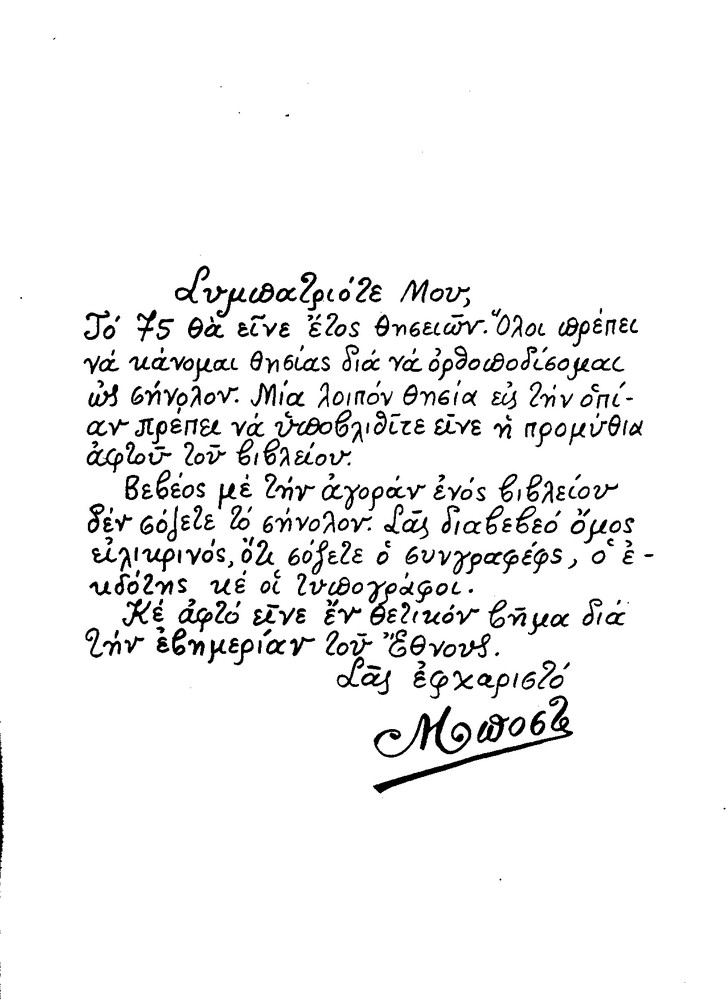 Συμπατριότε Μου,
Τό 75 θὰ εἶνε ἔτος θησειῶν. Ὅλοι πρέπει
νά κάνομαι θησίας διά νά ὀρθοποδίσομαι
ὡς σήνολον. Μία λοιπόν θησία εἰς τήν ὁπί-
αν πρέπει νά ὑποβλιθῖτε εἶνε ἡ προμύθια
ἀφτοῦ τοῦ βιβλείου.
Βεβέος μέ τήν ἀγοράν ἑνός βιβλείου
δέν σόζετε τό σήνολον. Σᾶς διαβεβεό ὅμος
εἰλικρινός, ὅτι σόζετε ὁ συνγραφέφς, ὁ ἐ-
κδότης κέ οἱ τυπογράφοι.
Κέ ἀφτό εἶνε ἕν θετικόν βῆμα διά
τήν ἐβημερίαν τοῦ Ἔθνους.
Σᾶς ἐφχαριστό
Μποστ